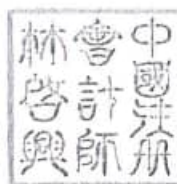 中國註册
會計師
林啓興